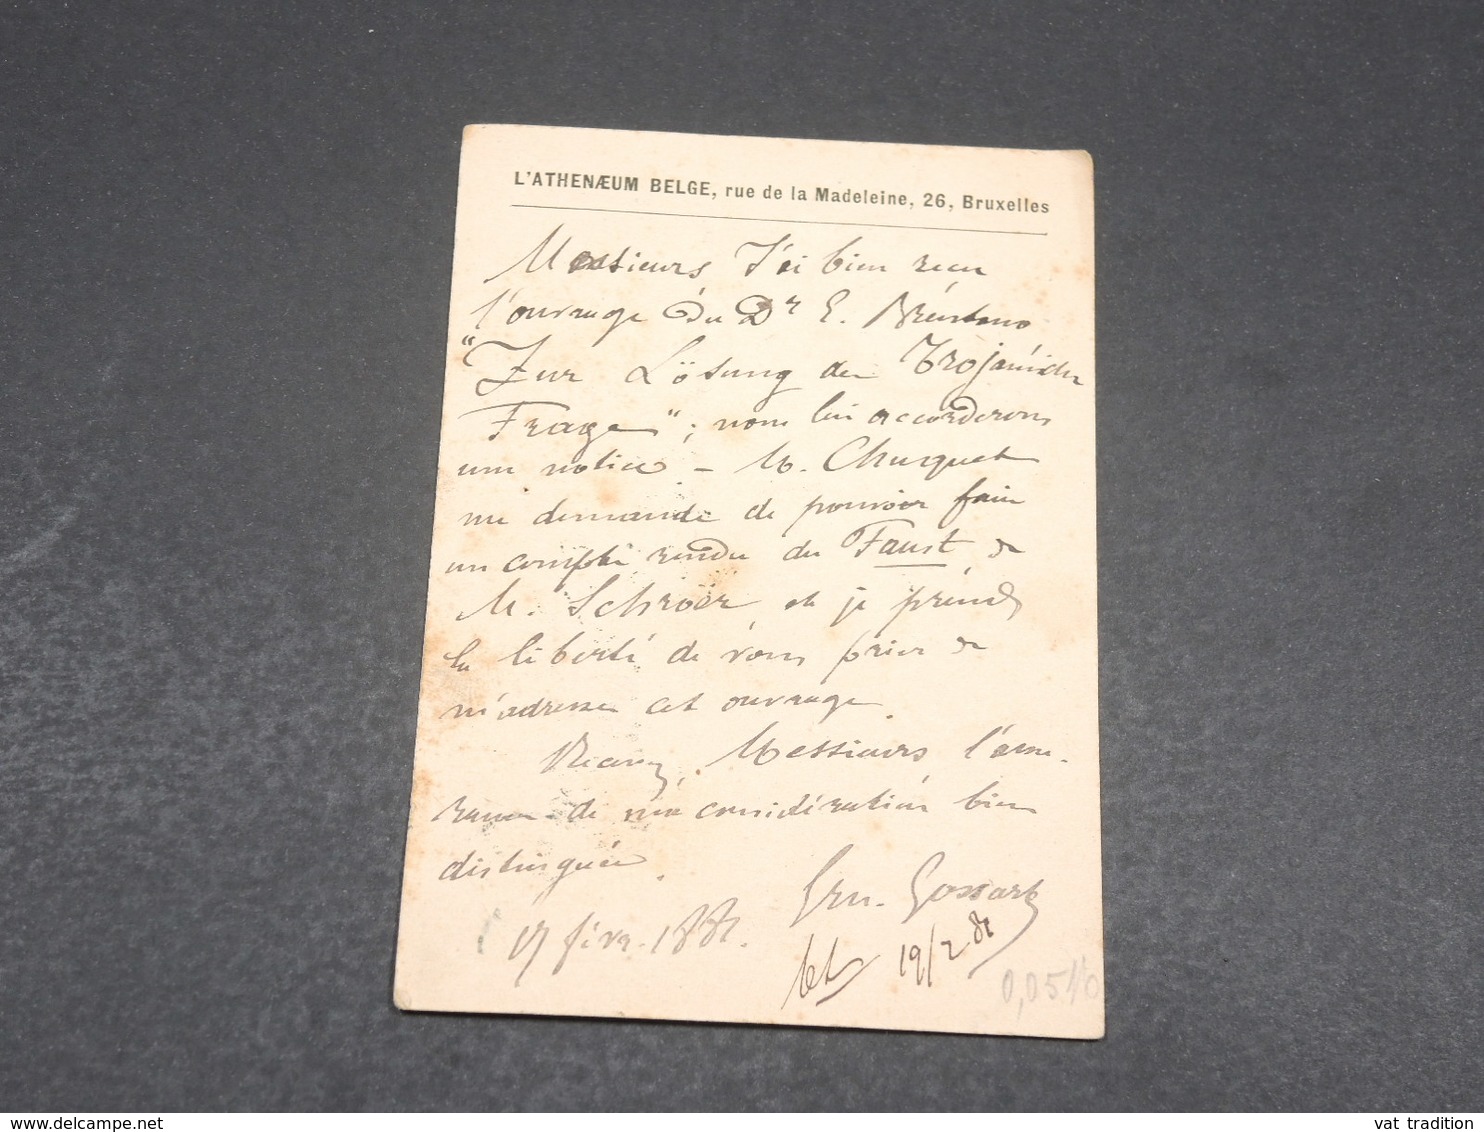 L'ATHENÆUM BELGE, rue de la Madeleine, 26, Bruxelles
Messieurs J'ai bien reçu
l'ouvrage du Dr E. Brentano
"Zur Lösung der Trojanischen
Frage"; nous lui accorderons
une notice – M. Chuquet
me demande de pouvoir faire
un compte rendu du Faust de
M. Schröer, et je prends
la liberté de vous prier de
m'adresser cet ouvrage.
Recevez, Messieurs l'assu-
rance de ma considération bien
distinguée.
Ern. Gossart
févr. 188
19/2 8
0,05
vat tradition